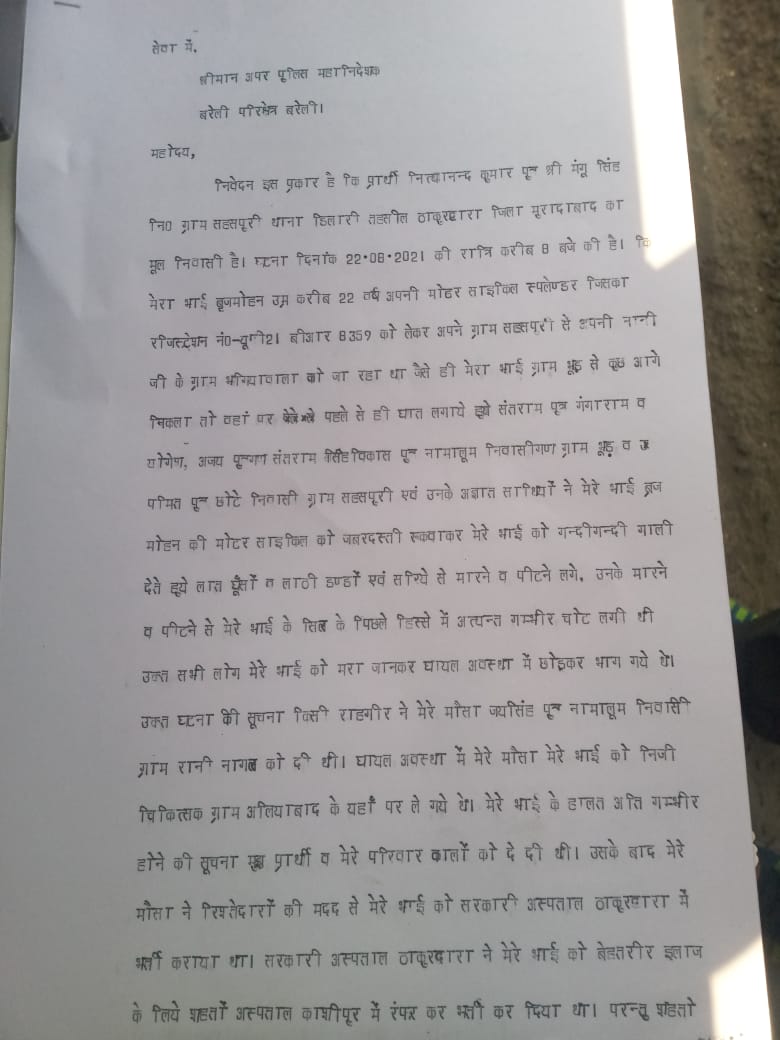 सेवा में,
श्रीमान अपर पुलिस महानिदेशक
बरेली परिक्षेत्र बरेली।
महोदय,
निवेदन इस प्रकार है कि प्रार्थी नित्यानन्द कुमार पुत्र श्री मंगू सिंह
नि0 ग्राम सहसपुरी थाना डिलारी तहसील ठाकुरद्वारा जिला मुरादाबाद का
मूल निवासी है। घटना दिनांक 22.08.2021 की रात्रि करीब 8 बजे की है। कि
मेरा भाई बृजमोहन उम्र करीब 22 वर्ष अपनी मोटर साइकिल स्पलेण्डर जिसका
रजिस्ट्रेशन नं0-यूपी21 बीआर 8359 को लेकर अपने ग्राम सहसपुरी से अपनी नानी
जी के ग्राम भगियावाला को जा रहा था जैसे ही मेरा भाई ग्राम भूड़ से कुछ आगे
निकला तो वहां पर पहले से ही घात लगाये हुये संतराम पुत्र गंगाराम व
योगेश, अजय पुत्रगण संतराम सिंह विकास पुत्र नामालूम निवासीगण ग्राम भूड़ व
पमित पुत्र छोटे निवासी ग्राम सहसपुरी एवं उनके अज्ञात साथियों ने मेरे भाई ब्रज
मोहन की मोटर साइकिल को जबरदस्ती रूकवाकर मेरे भाई को गन्दीगन्दी गाली
देते हुये लात घूँसों व लाठी डण्डों एवं सरिये से मारने व पीटने लगे, उनके मारने
व पीटने से मेरे भाई के सिर के पिछले हिस्से में अत्यन्त गम्भीर चोट लगी थी
उक्त सभी लोग मेरे भाई को मरा जानकर घायल अवस्था में छोड़कर भाग गये थे।
उक्त घटना की सूचना किसी राहगीर ने मेरे मौसा जयसिंह पुत्र नामालूम निवासी
ग्राम रानी नागल को दी थी। घायल अवस्था में मेरे मौसा मेरे भाई को निजी
चिकित्सक ग्राम अलियाबाद के यहाँ पर ले गये थे। मेरे भाई के हालत अति गम्भीर
होने की सूचना मुझ प्रार्थी व मेरे परिवार वालों को दे दी थी। उसके बाद मेरे
मौसा ने रिश्तेदारों की मदद से मेरे भाई को सरकारी अस्पताल ठाकुरद्वारा में
भर्ती कराया था। सरकारी अस्पताल ठाकुरद्वारा ने मेरे भाई को बेहतरीर इलाज
के लिये सहतों अस्पताल काशीपुर में रेफर कर भर्ती कर दिया था। परन्तु सहतो